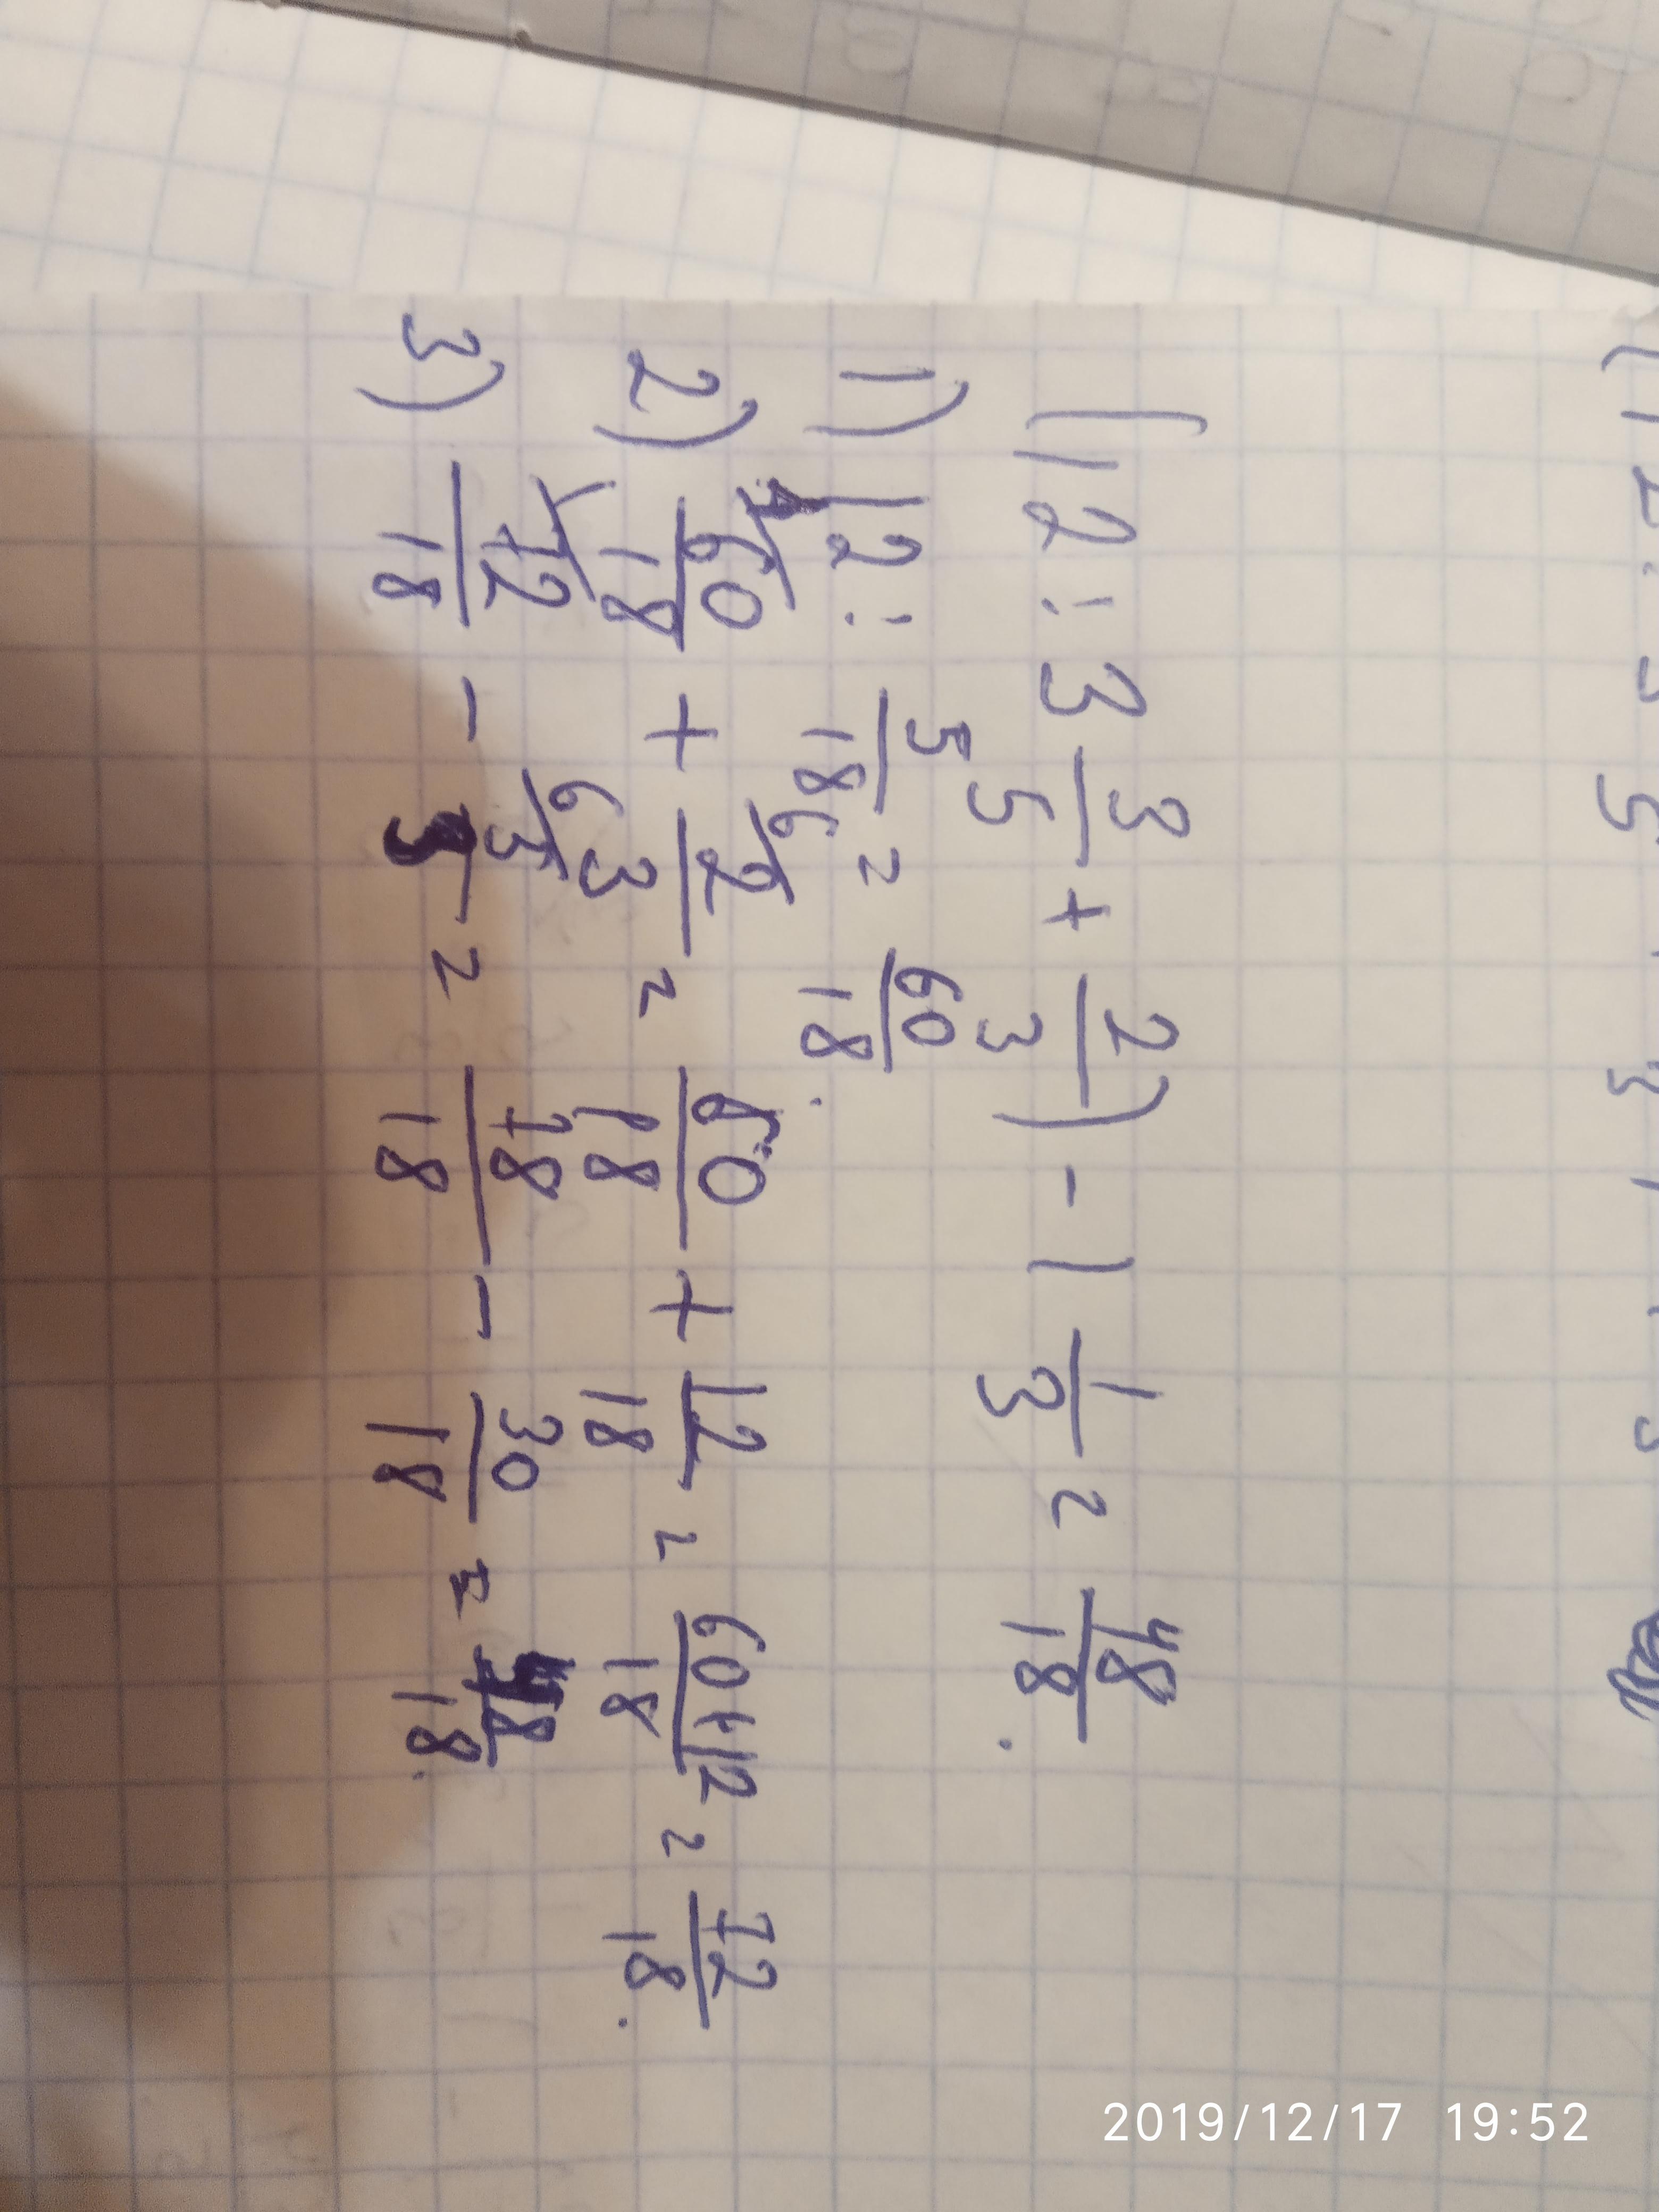 (12 : 3 3/5 + 2/3) - 1 1/3 = 48/18.
1) 12 : 5/18 = 60/18.
2) 60/18 + 2/3 = 60/18 + 12/18 = 60+12/18 = 72/18.
3) 72/18 - = 78/18 - 30/18 = 48/18.
2019/12/17 19:52